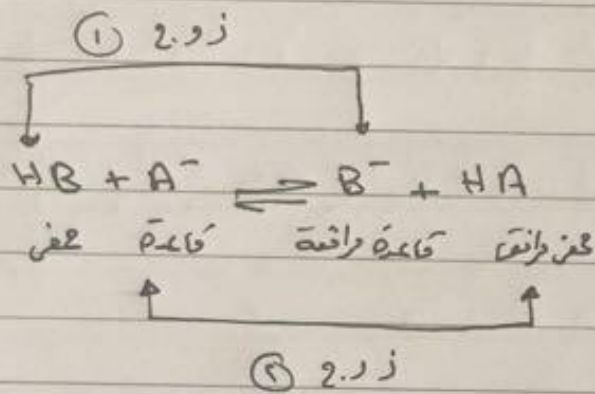 زوج ①
HB + A⁻ ⇌ B⁻ + HA
حمض قاعدة قاعدة مرافقة حمض مرافق
زوج ②